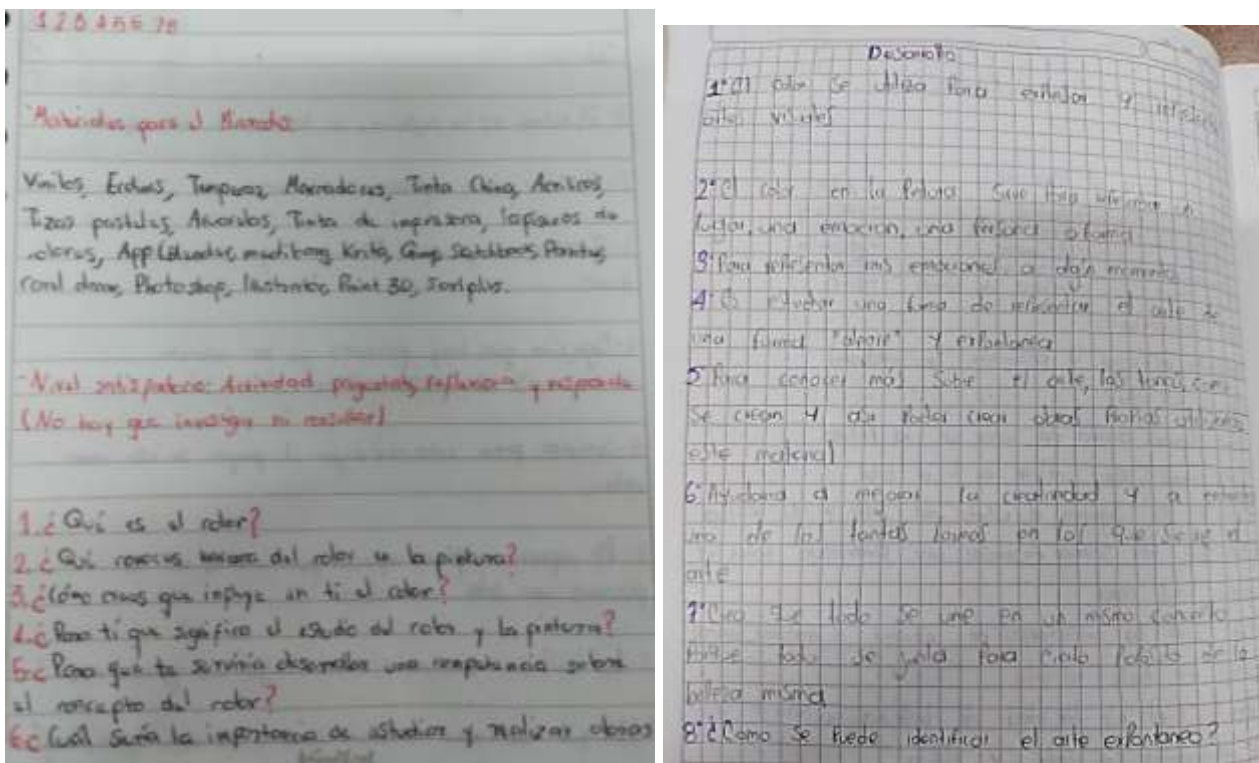 1 2 3 4 5 6 7 8
Materiales para el
Vinilos, Ecolines, Temperas, Marcadores, Tinta China, Acrilicos,
Tizas pasteles, Acuarelas, Tinta de impresora, lapices de
colores, App medibang, Krita, Gimp, Sketchbook,
corel draw, Photoshop, Ilustrator, Paint 3D,
Nivel Actividad preguntas, reflexiona y responde
(No hay que investigar ni consultar)
1. ¿Qué es el color?
2. ¿Qué conoces acerca del color en la pintura?
3. ¿Cómo crees que influye en ti el color?
4. ¿Para ti que significa el estudio del color y la pintura?
5. ¿Para qué te serviria desarrollar una competencia sobre
el concepto del color?
6. ¿Cuál sería la importancia de estudiar y realizar obras
Desarrollo
1° El color se utiliza para y
artes visuales
2° El color en la Pintura Sirve Para un
lugar, una emoción, una Persona o forma
3° Para mis emociones o algún momento
4° Es estudiar una forma de representar el arte de
una forma "alegre" y
5° Para conocer más Sobre el arte, las formas,
se crean y asi Poder crear obras Propias
este material
6° Ayudaria a mejorar la creatividad y a
una de las tantas formas en las que Se ve el
arte
7° Creo que todo se une en un mismo
todo se junta Para de la
belleza misma
8° ¿Como se Puede identificar el arte exPontaneo?